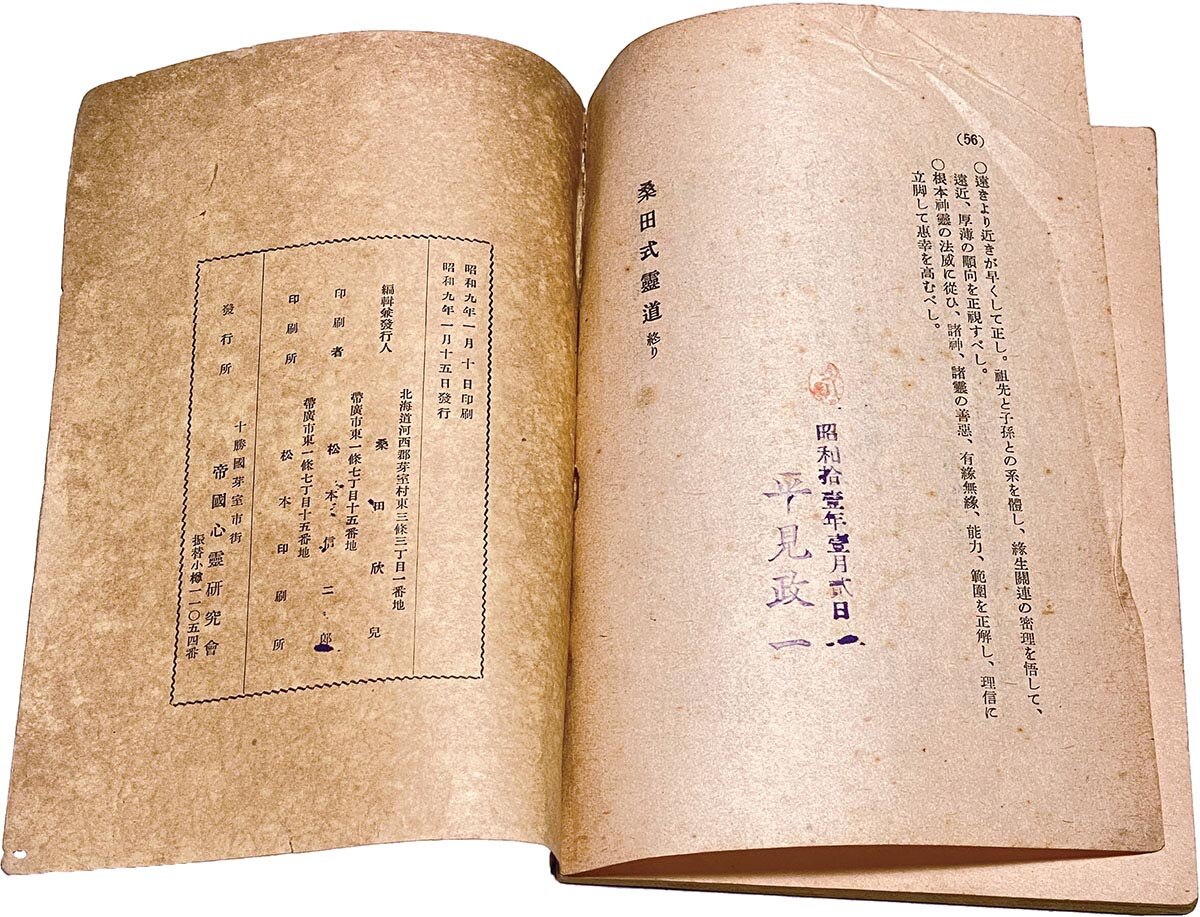 (56)
○遠きより近きが早くして正し。祖先と子孫との系を體し、緣生關連の密理を悟して、
遠近、厚薄の順向を正視すべし。
○根本神靈の法威に從ひ、諸神、諸靈の善惡、有緣無緣、能力、範圍を正解し、理信に
立脚して惠幸を高むべし。
昭和拾壹年壹月貳日
平見政一
桑田式靈道 終り
昭和九年一月十日印刷
昭和九年一月十五日發行
北海道河西郡芽室村東三條三丁目一番地
編輯兼發行人 桑田欣兒
帶廣市東一條七丁目十五番地
印刷者 松本信二郎
帶廣市東一條七丁目十五番地
印刷所 松本印刷所
十勝國芽室市街
發行所 帝國心靈研究會
振替小樽一一〇五四番